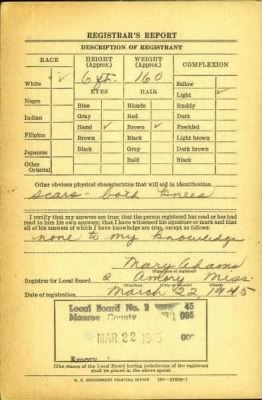 REGISTRAR'S REPORT
DESCRIPTION OF REGISTRANT
RACE HEIGHT (Approx.) WEIGHT (Approx.) COMPLEXION
White ✓ 6 ft. 160 Sallow
EYES HAIR Light ✓
Negro Blue Blonde Ruddy
Indian Gray Red Dark
Filipino Hazel ✓ Brown ✓ Freckled
Japanese Brown Black Light brown
Other Oriental Black Gray Dark brown
Bald Black
Other obvious physical characteristics that will aid in identification
scars - both knees
I certify that my answers are true; that the person registered has read or has had
read to him his own answers; that I have witnessed his signature or mark and that
all of his answers of which I have knowledge are true, except as follows:
none to my knowledge
Mary Adams
(Signature of registrar)
Registrar for Local Board 2 Amory Miss
Date of registration March 22, 1945
Local Board No. 2 45
Monroe County 095
MAR 22 1945
Amory
(The stamp of the Local Board having jurisdiction of the registrant
shall be placed in the above space)
U. S. GOVERNMENT PRINTING OFFICE